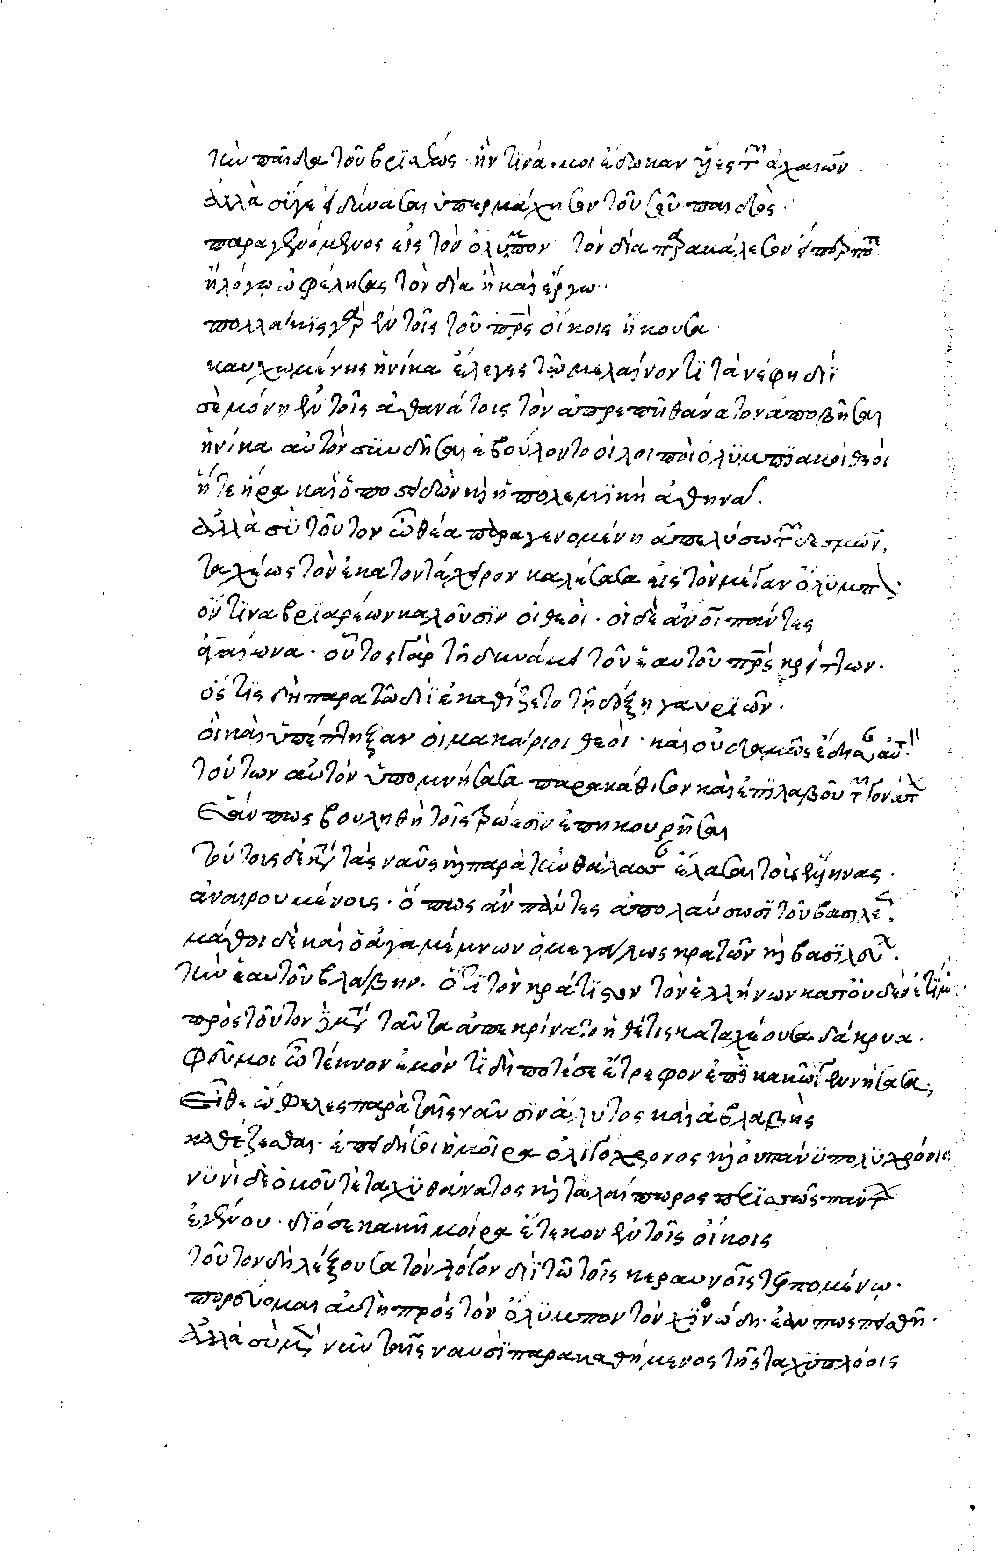 τὴν παῖδα τοῦ βρϊσέως· ἥν τινά μοι ἔδωκαν υἷες τῶν ἀχαιῶν
ἀλλὰ σὺ γε εἰ δύνασαι ὑπερμάχησον τοῦ σοῦ παιδός·
παραγενόμενος εἰς τὸν ὄλυμπον τὸν δία παρακάλεσον εἴπερ ποτὲ
ἢ λόγω ὠφέλησας τὸν δία ἢ καὶ ἔργω·
πολλάκις γὰρ ἐν τοῖς τοῦ πατρὸς οἴκοις ἤκουσα·
καυχωμένης ἡνίκα ἔλεγες τῶ μελαίνοντι τὰ νέφη διῒ
σὲ μόνη ἐν τοῖς ἀθανάτοις τὸν ἀπρεπῆ θάνατον ἀποβῆσαι
ἡνίκα αὐτὸν συνδῆσαι ἐβούλοντο οἱ λοιποὶ ὀλυμπϊακοὶ θεοὶ
ἥτε ἥρα καὶ ὁ ποσειδῶν καὶ ἡ πολεμϊκὴ ἀθηνᾶ.
ἀλλὰ σὺ τοῦτον ὦ θέα παραγενομένη ἀπελύσω τῶν δεσμῶν,
ταχέως τὸν ἑκατοντάχειρον καλέσασα εἰς τὸν μέγαν ὄλυμπον·
ὅν τινα βρϊαρέων καλοῦσϊν οἱ θεοὶ· οἱ δὲ ἄνοι πάντες
αἰγαίωνα· οὗτος γὰρ τῇ δυνάμει τοῦ ἑαυτοῦ πρς κρείττων·
ὅς τις δὴ παρὰ τῶ διῒ ἐκαθέζετο τῇ δόξη γαυρϊῶν·
ὃν καὶ ὑπέπτηξαν οἱ μακάριοι θεοὶ· καὶ οὐδαμῶς ἔδησαν αὐτὸν
τούτων αὐτὸν ὑπομνήσασα παρακάθισον καὶ ἐπϊλαβοῦ τῶν γονάτων
ἐάν πως βουληθῆ τοῖς τρώεσϊν ἐπηκουρῆσαι
τούτοις δὲ κατὰ τὰς ναῦς καὶ παρὰ τὴν θάλασσαν ἐλάσαι τοὺς ἕλληνας·
ἀναιρουμένοις· ὅπως ἂν πάντες ἀπολαύσωσϊ τοῦ βασϊλέως
μάθοι δὲ καὶ ὁ ἀγαμέμνων ὁ μεγάλως κρατῶν καὶ βασϊλεύων·
τὴν ἑαυτοῦ βλάβην· ὅτι τὸν κράτιστον τὸν ἑλλήνων κατ' οὐδὲν ἐτίμησε
πρὸς τοῦτον μετὰ ταῦτα ἀπεκρίνατο ἡ θέτις καταχέουσα δάκρυα·
φεῦ μοι ὦ τέκνον ἐμὸν τί δήποτέ σε ἔτρεφον ἐπῒ κακῶ γεννήσασα,
εἴθε ὤφελες παρὰ ταῖς ναυσϊν ἄλυτος καὶ ἀβλαβὴς
καθέζεσθαι· ἐπειδή σοι ἡ μοῖρα ὀλιγόχρονος καὶ οὐ πάνυ πολυχρόνιος
νυνὶ δὲ ὁμοῦ τε ταχυθάνατος καὶ ταλαίπωρος περϊσσῶς πάντων
ἐγένου· διό σε κακῇ μοίρα ἔτεκον ἐν τοῖς οἴκοις
τοῦτον δὴ λέξουσα τὸν λόγον διῒ τῶ τοῖς κεραυνοῖς τερπομένω·
πορεύομαι αὐτὴ πρὸς τὸν ὄλυμπον τὸν χϊονώδη· ἐάν πως πεισθῇ·
ἀλλὰ σὺ μὲν νῦν ταῖς ναυσὶ παρακαθήμενος ταῖς ταχϋπλόοις